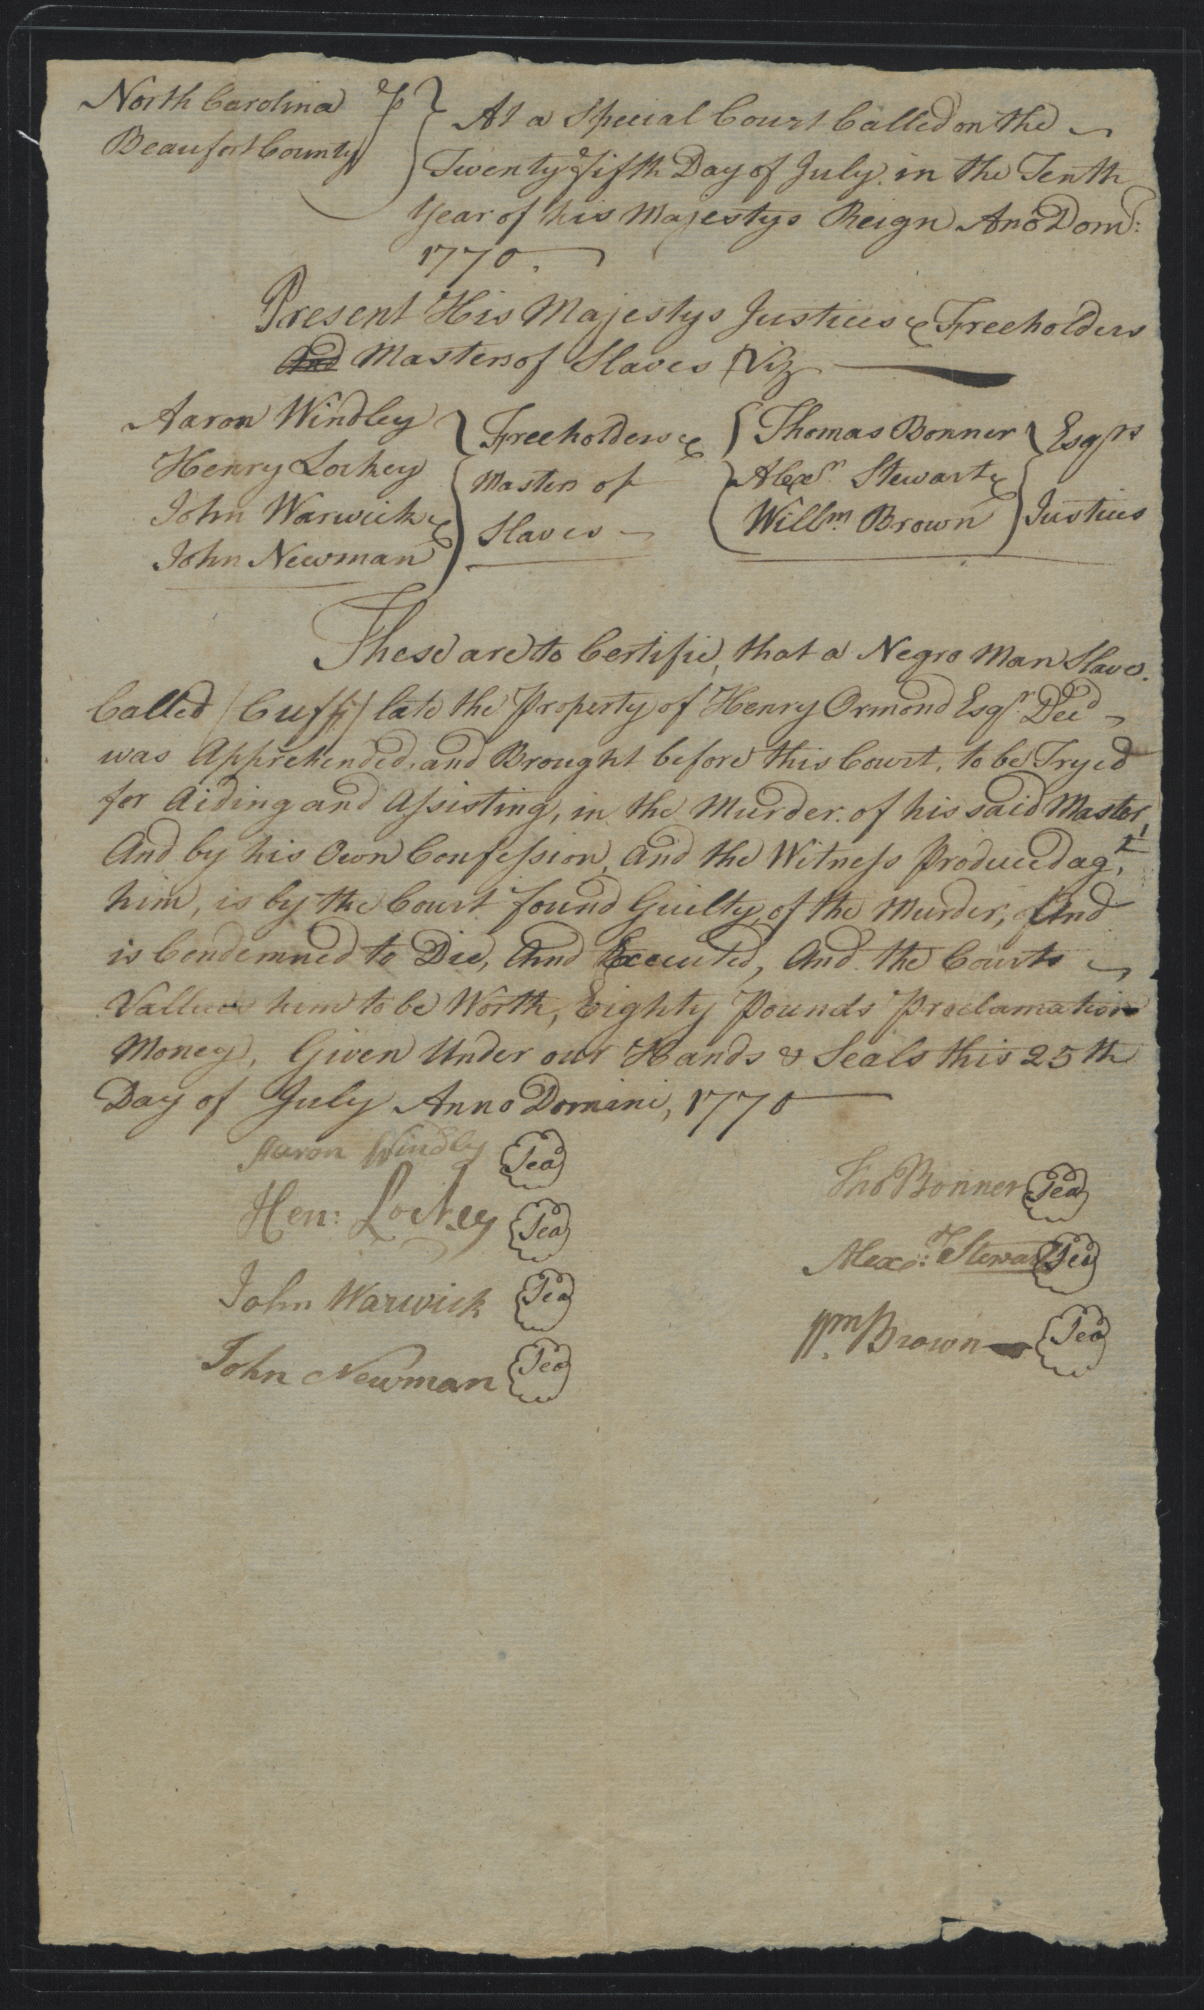 North Carolina
Beaufort County
At a Special Court Called on the
Twenty fifth Day of July in the Tenth
Year of his Majestys Reign Ano Dom:
1770.
Present His Majestys Justices & Freeholders
And Masters of Slaves Viz
Aaron Windley
Henry Lockey
John Warwick &
John Newman
Freeholders &
Masters of
Slaves
Thomas Bonner
Alexr. Stewart &
Willm. Brown
Esqrs
Justices
These are to Certifie, that a Negro Man Slave.
Called (Cuff) late the Property of Henry Ormond Esqr. Decd
was Apprehended, and Brought before this Court, to be Tryed
for Aiding and Assisting, in the Murder. of his said Master,
And by his Own Confession, And the Witness Produced agt.
him, is by the Court found Guilty, of the Murder, And
is Condemned to Die, And Executed, And the Courts
Vallues him to be Worth, Eighty Pounds Proclamation
Money, Given Under our Hands & Seals this 25th
Day of July Anno Domini, 1770
Aaron Windley Seal
Hen: Lockey Seal
John Warwick Seal
John Newman Seal
Tho Bonner Seal
Alexr: Stewart Seal
Wm. Brown Seal